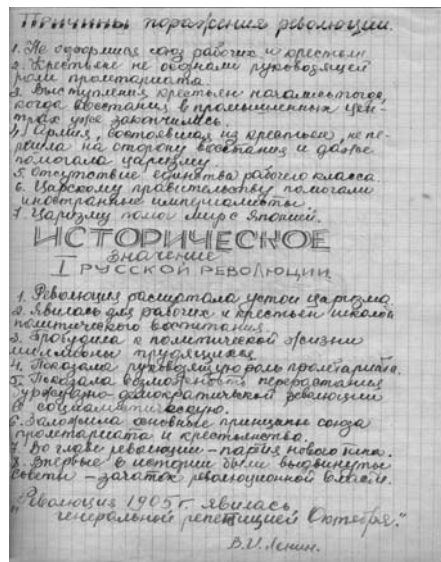 Причины поражения революции.
1. Не оформился союз рабочих и крестьян.
2. Крестьяне не осознали руководящей
роли пролетариата.
3. Выступления крестьян начались тогда,
когда восстания в промышленных цен-
трах уже закончились.
4. Армия, состоявшая из крестьян, не пе-
решла на сторону восстания и даже
помогала царизму.
5. Отсутствие единства рабочего класса.
6. Царскому правительству помогали
иностранные империалисты.
7. Царизму помог мир с Японией.
ИСТОРИЧЕСКОЕ
значение
I РУССКОЙ РЕВОЛЮЦИИ
1. Революция расшатала устои царизма.
2. Явилась для рабочих и крестьян школой
политического воспитания.
3. Пробудила к политической жизни
миллионы трудящихся.
4. Показала руководящую роль пролетариата.
5. Показала возможность перерастания
буржуазно-демократической революции
в социалистическую.
6. Заложила основные принципы союза
пролетариата и крестьянства.
7. Во главе революции – партия нового типа.
8. Впервые в истории были выдвинуты
советы – зачаток революционной власти.
Революция 1905 г. явилась
"генеральной репетицией Октября."
В.И. Ленин.